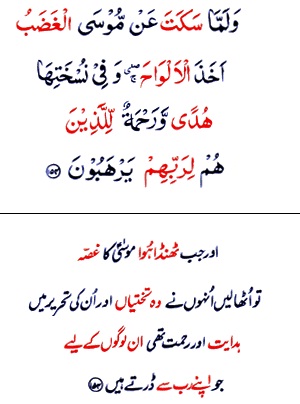 وَلَمَّا سَكَتَ عَنْ مُّوْسَى الْغَضَبُ
اَخَذَ الْاَلْوَاحَ ۖۚ وَ فِیْ نُسْخَتِهَا
هُدًى وَّرَحْمَةٌ لِّلَّذِیْنَ
هُمْ لِرَبِّهِمْ یَرْهَبُوْنَ ﴿۱۵۴﴾
اور جب ٹھنڈا ہُوا موسٰیؑ کا غصّہ
تو اُٹھا لیں اُنہوں نے وہ تختیاں اور اُن کی تحریر میں
ہدایت اور رحمت تھی ان لوگوں کے لیے
جو اپنے رب سے ڈرتے ہیں ﴿۱۵۴﴾